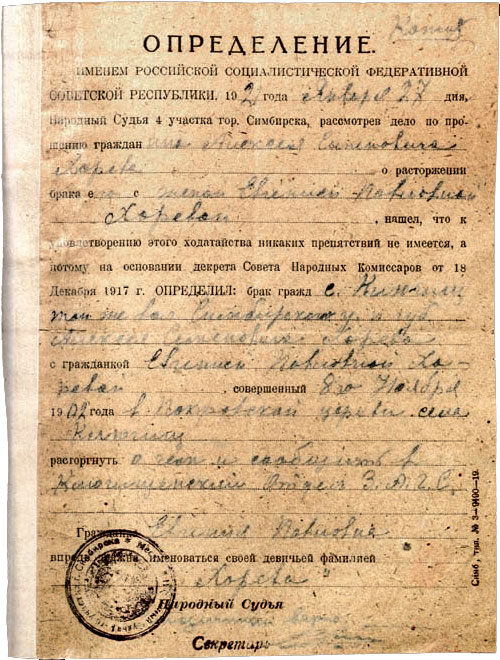 Копия
ОПРЕДЕЛЕНИЕ.
ИМЕНЕМ РОССИЙСКОЙ СОЦИАЛИСТИЧЕСКОЙ ФЕДЕРАТИВНОЙ
СОВЕТСКОЙ РЕСПУБЛИКИ, 192 года Января 27 дня,
Народный Судья 4 участка гор. Симбирска, рассмотрев дело по про-
шению граждан ина Алексея Семеновича
Хорева о расторжении
брака его с женой Евгенией Павловной
Хоревой, нашел, что к
удовлетворению этого ходатайства никаких препятствий не имеется, а
потому на основании декрета Совета Народных Комиссаров от 18
Декабря 1917 г. ОПРЕДЕЛИЛ: брак гражд с.
той же вол Симбирского у и губ
Алексея Семеновича Хорева
с гражданкой Евгенией Павловной Хо-
ревой, совершенный 8го Ноября
1902 года в Покровской церкви села
расторгнуть о чем и сообщить в
Ключищенский Отдел З.А.Г.С.
Гражд Евгения Павловна
впредь именоваться своей девичьей фамилией
"Хорева"
Народный Судья
Секретарь
Симб. тип. № 3—9190—19.